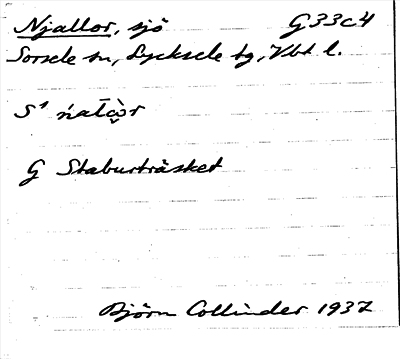 Njallor, sjö G33c4
Sorsele sn, Lycksele tg, Vbt l.
G Staburträsket
Björn Collinder 1937